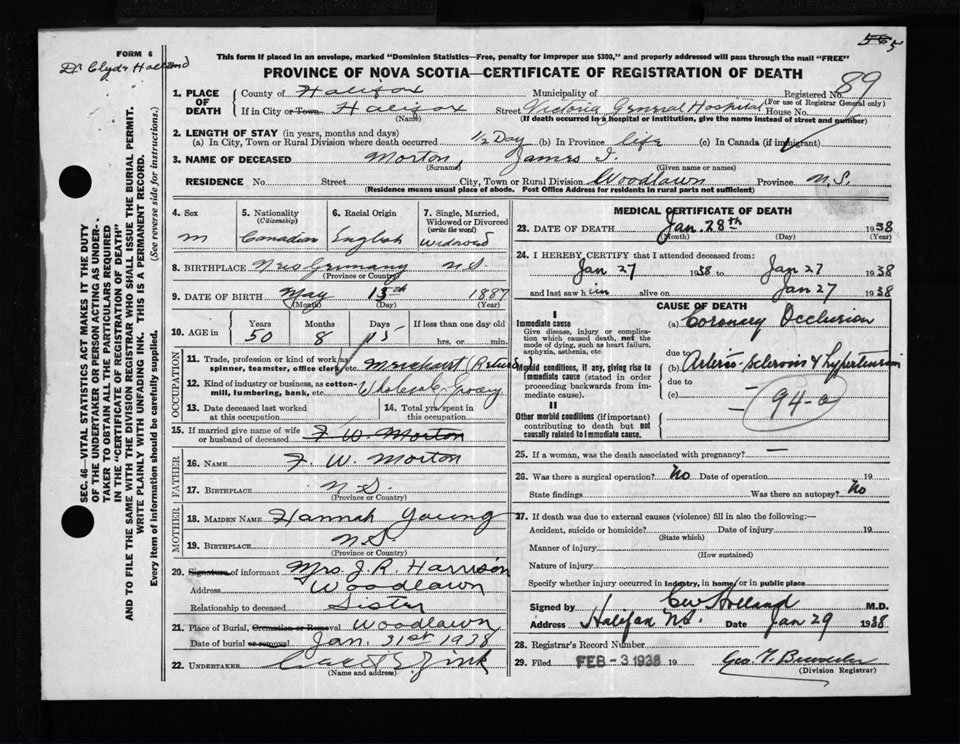 545
FORM 6
Dr Clyde Holland
This form if placed in an envelope, marked "Dominion Statistics—Free, penalty for improper use $300," and properly addressed will pass through the mail "FREE"
PROVINCE OF NOVA SCOTIA—CERTIFICATE OF REGISTRATION OF DEATH
SEC. 46—VITAL STATISTICS ACT MAKES IT THE DUTY
OF THE UNDERTAKER OR PERSON ACTING AS UNDER-
TAKER TO OBTAIN ALL THE PARTICULARS REQUIRED
IN THE "CERTIFICATE OF REGISTRATION OF DEATH"
AND TO FILE THE SAME WITH THE DIVISION REGISTRAR WHO SHALL ISSUE THE BURIAL PERMIT.
WRITE PLAINLY WITH UNFADING INK. THIS IS A PERMANENT RECORD.
Every item of information should be carefully supplied. (See reverse side for instructions.)
1. PLACE OF DEATH
County of Halifax Municipality of Registered No. 89
(For use of Registrar General only)
If in City or Town Halifax Street Victoria General Hospital House No.
(Name) (If death occurred in a hospital or institution, give the name instead of street and number)
2. LENGTH OF STAY (in years, months and days)
(a) In City, Town or Rural Division where death occurred 1/2 Day (b) In Province life (c) In Canada (if immigrant)
3. NAME OF DECEASED Morton, James I.
(Surname) (Given name or names)
RESIDENCE No. Street City, Town or Rural Division Woodlawn Province N.S.
(Residence means usual place of abode. Post Office Address for residents in rural parts not sufficient)
4. Sex M
5. Nationality (Citizenship) Canadian
6. Racial Origin English
7. Single, Married, Widowed or Divorced (write the word) Widowed
8. BIRTHPLACE New Germany N.S.
(Province or Country)
9. DATE OF BIRTH May 13th 1887
(Month) (Day) (Year)
10. AGE in Years Months Days If less than one day old
50 8 15 hrs. or min.
OCCUPATION
11. Trade, profession or kind of work as spinner, teamster, office clerk, etc. Merchant (Retired)
12. Kind of industry or business, as cotton-mill, lumbering, bank, etc. Wholesale Grocery
13. Date deceased last worked at this occupation
14. Total yrs. spent in this occupation
15. If married give name of wife or husband of deceased F. W. Morton
FATHER
16. NAME F. W. Morton
17. BIRTHPLACE N.S.
(Province or Country)
MOTHER
18. MAIDEN NAME Hannah Young
19. BIRTHPLACE N.S.
(Province or Country)
20. Signature of informant Mrs. J. R. Harrison
Address Woodlawn
Relationship to deceased Sister
21. Place of Burial, Cremation or Removal Woodlawn
Date of burial or removal Jan. 31st 1938
22. UNDERTAKER Zink
(Name and address)
MEDICAL CERTIFICATE OF DEATH
23. DATE OF DEATH Jan. 28th 1938
(Month) (Day) (Year)
24. I HEREBY CERTIFY that I attended deceased from:
Jan 27 1938 to Jan 27 1938
and last saw him alive on Jan 27 1938
CAUSE OF DEATH
I
Immediate cause
Give disease, injury or complication which caused death, not the mode of dying, such as heart failure, asphyxia, asthenia, etc.
(a) Coronary Occlusion
due to
Morbid conditions, if any, giving rise to immediate cause (stated in order proceeding backwards from immediate cause).
(b) Arterio-sclerosis & hypertension
due to
(c)
94-a
II
Other morbid conditions (if important) contributing to death but not causally related to immediate cause.
25. If a woman, was the death associated with pregnancy? —
26. Was there a surgical operation? No Date of operation 19
State findings Was there an autopsy? No
27. If death was due to external causes (violence) fill in also the following:—
Accident, suicide or homicide? Date of injury 19
(State which)
Manner of injury
(How sustained)
Nature of injury
Specify whether injury occurred in industry, in home, or in public place
Signed by Holland M.D.
Address Halifax N.S. Date Jan 29 1938
28. Registrar's Record Number
29. Filed FEB - 3 1938 19
(Division Registrar)